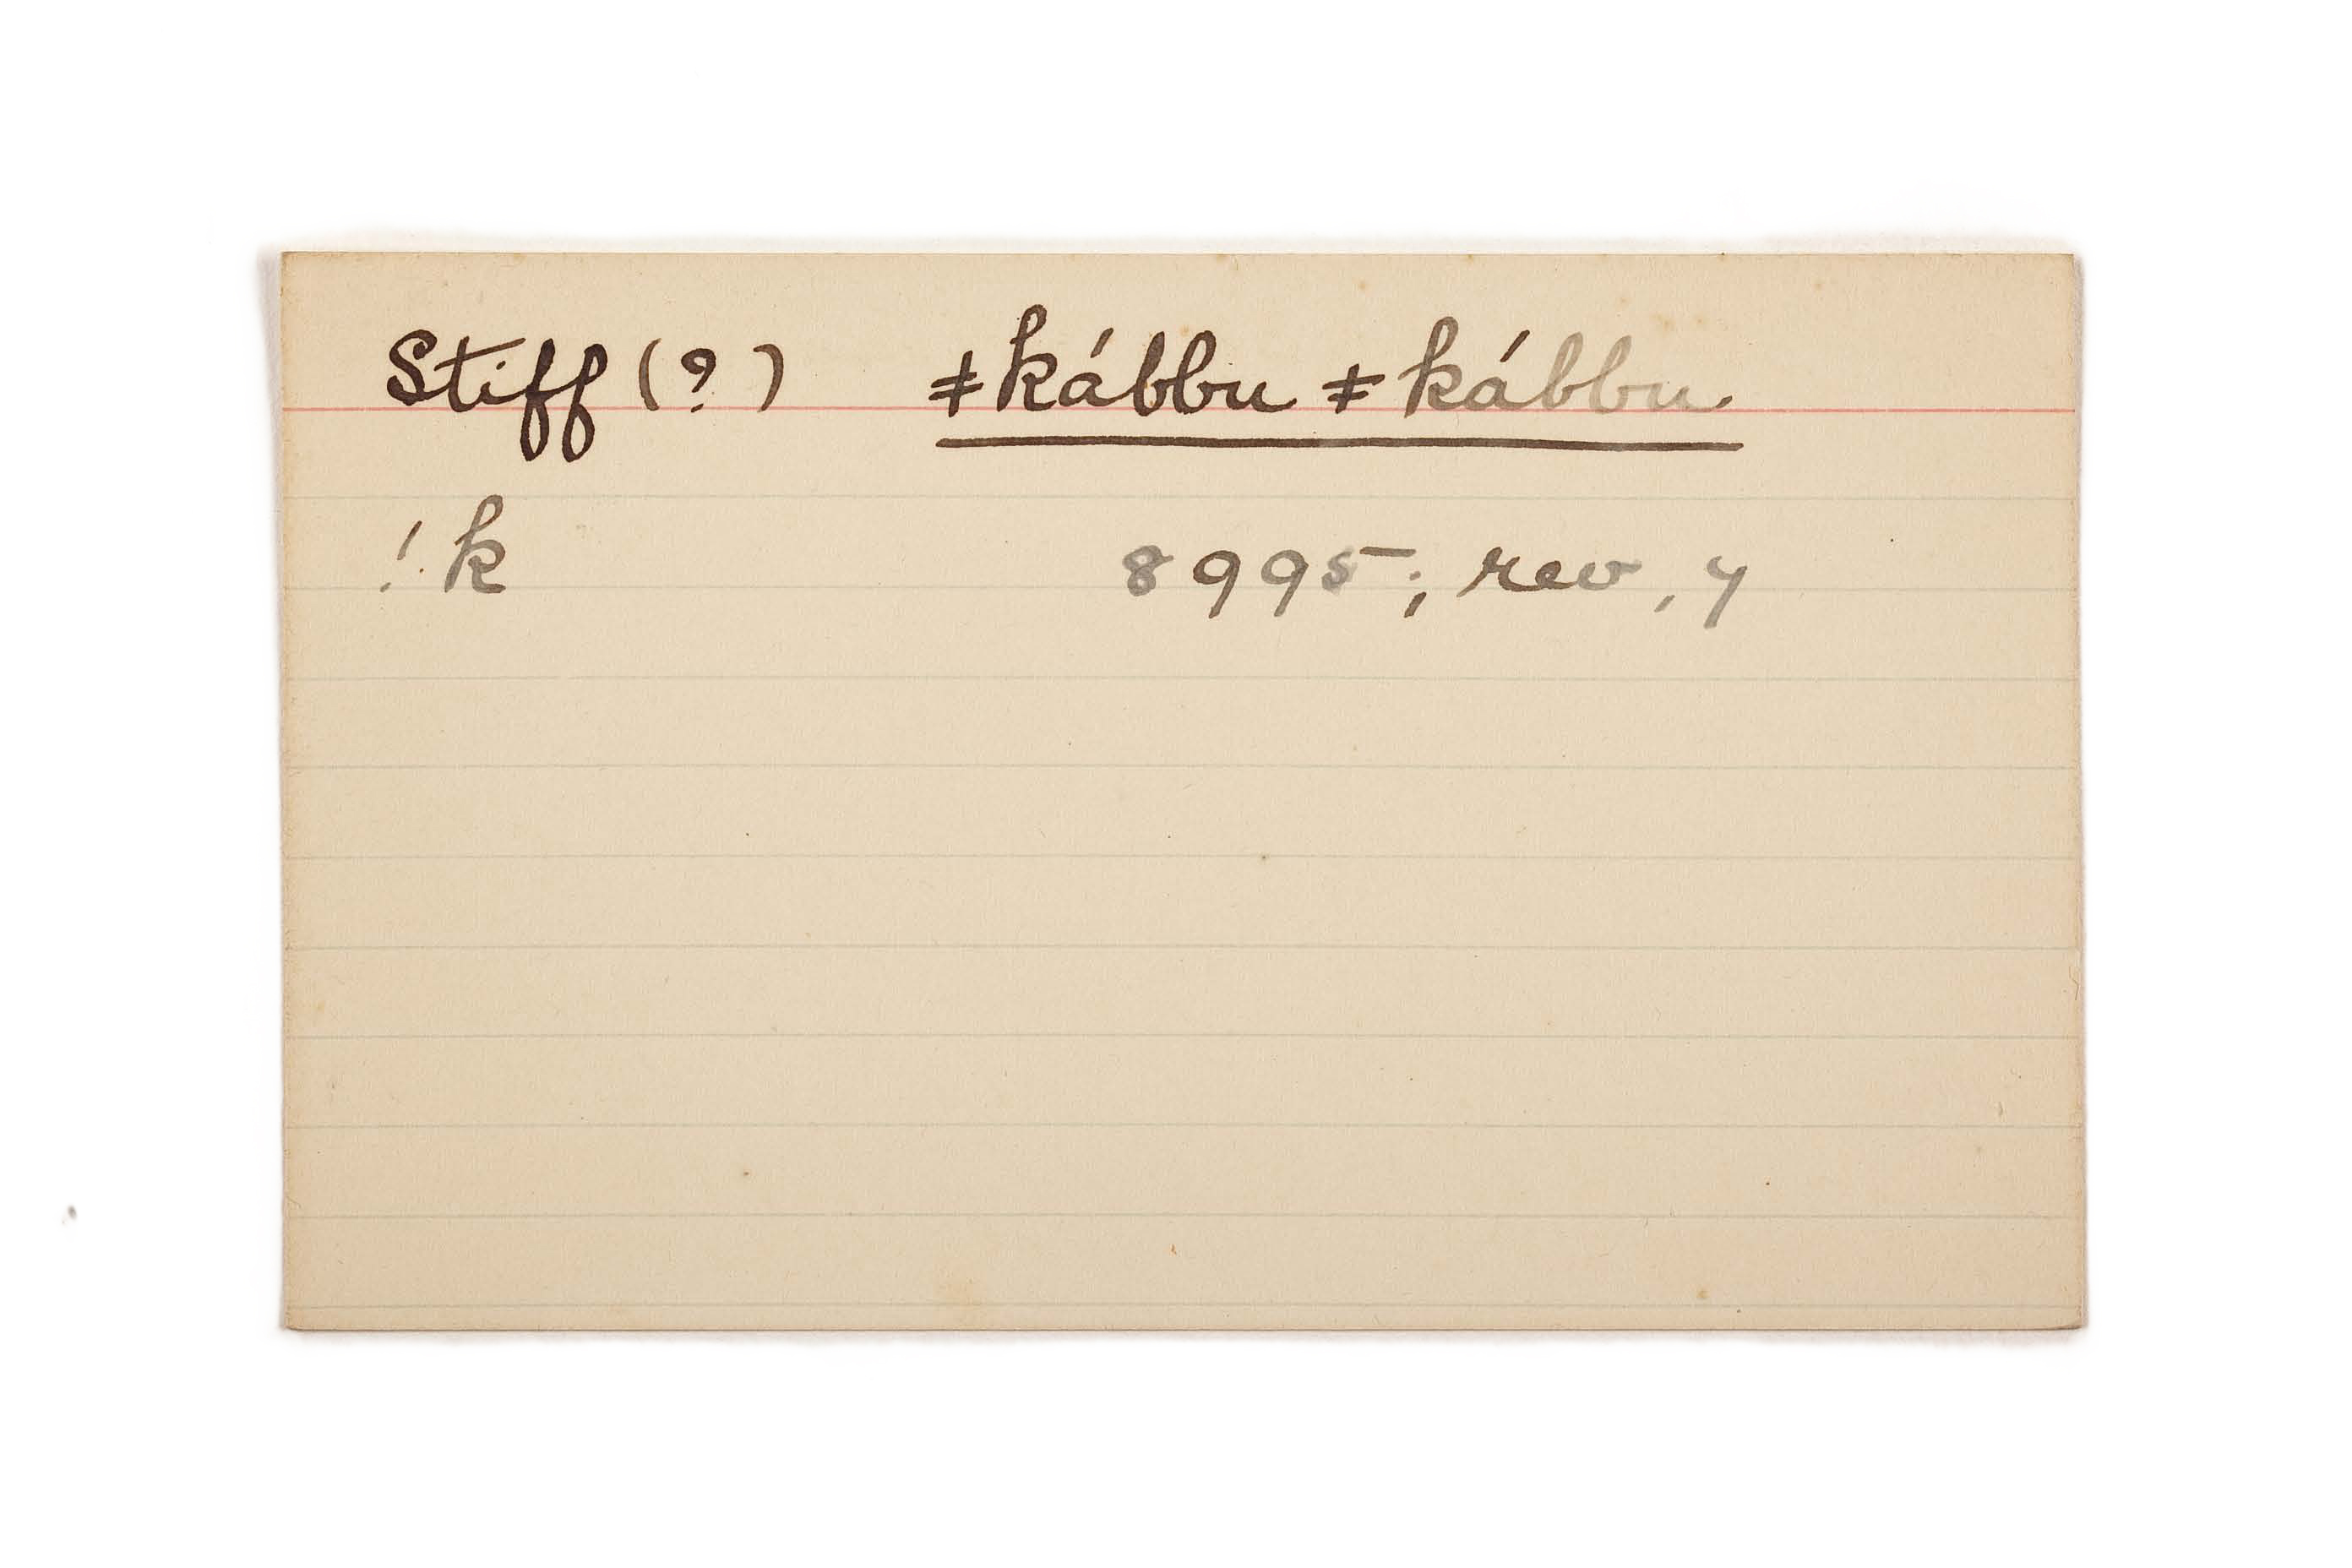 Stiff (?) ǂkábbu ǂkábbu.
!k 8995; rev, y